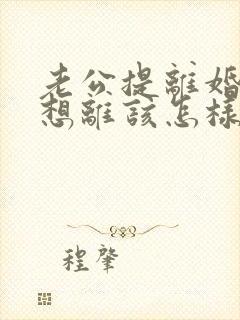 老公提離婚
想離該怎樣
程肇